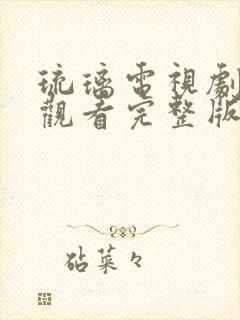 琉璃電視劇
觀看完整版
砧菜々